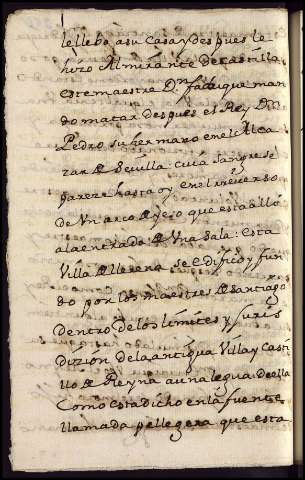 le llebo asu Casa y despues le
hizo Almirante de Castilla
este maestre Dn. fadrique man
do matar despues el Rey Dn
Pedro su hermano en el Alca
zar de Sevilla: cuia sangre se
pareze hasta oy en el
de Un arco de yeso que esta
a la entrada de Una Sala: esta
Villa de llerena se edifico y fun
do por los maestres de santiago
dentro de los limites y Juris
dizion de la antigua Villa y Casti
llo de Reyna a una legua de ella
Como esta dicho en la fuente
llamada pellegera que esta